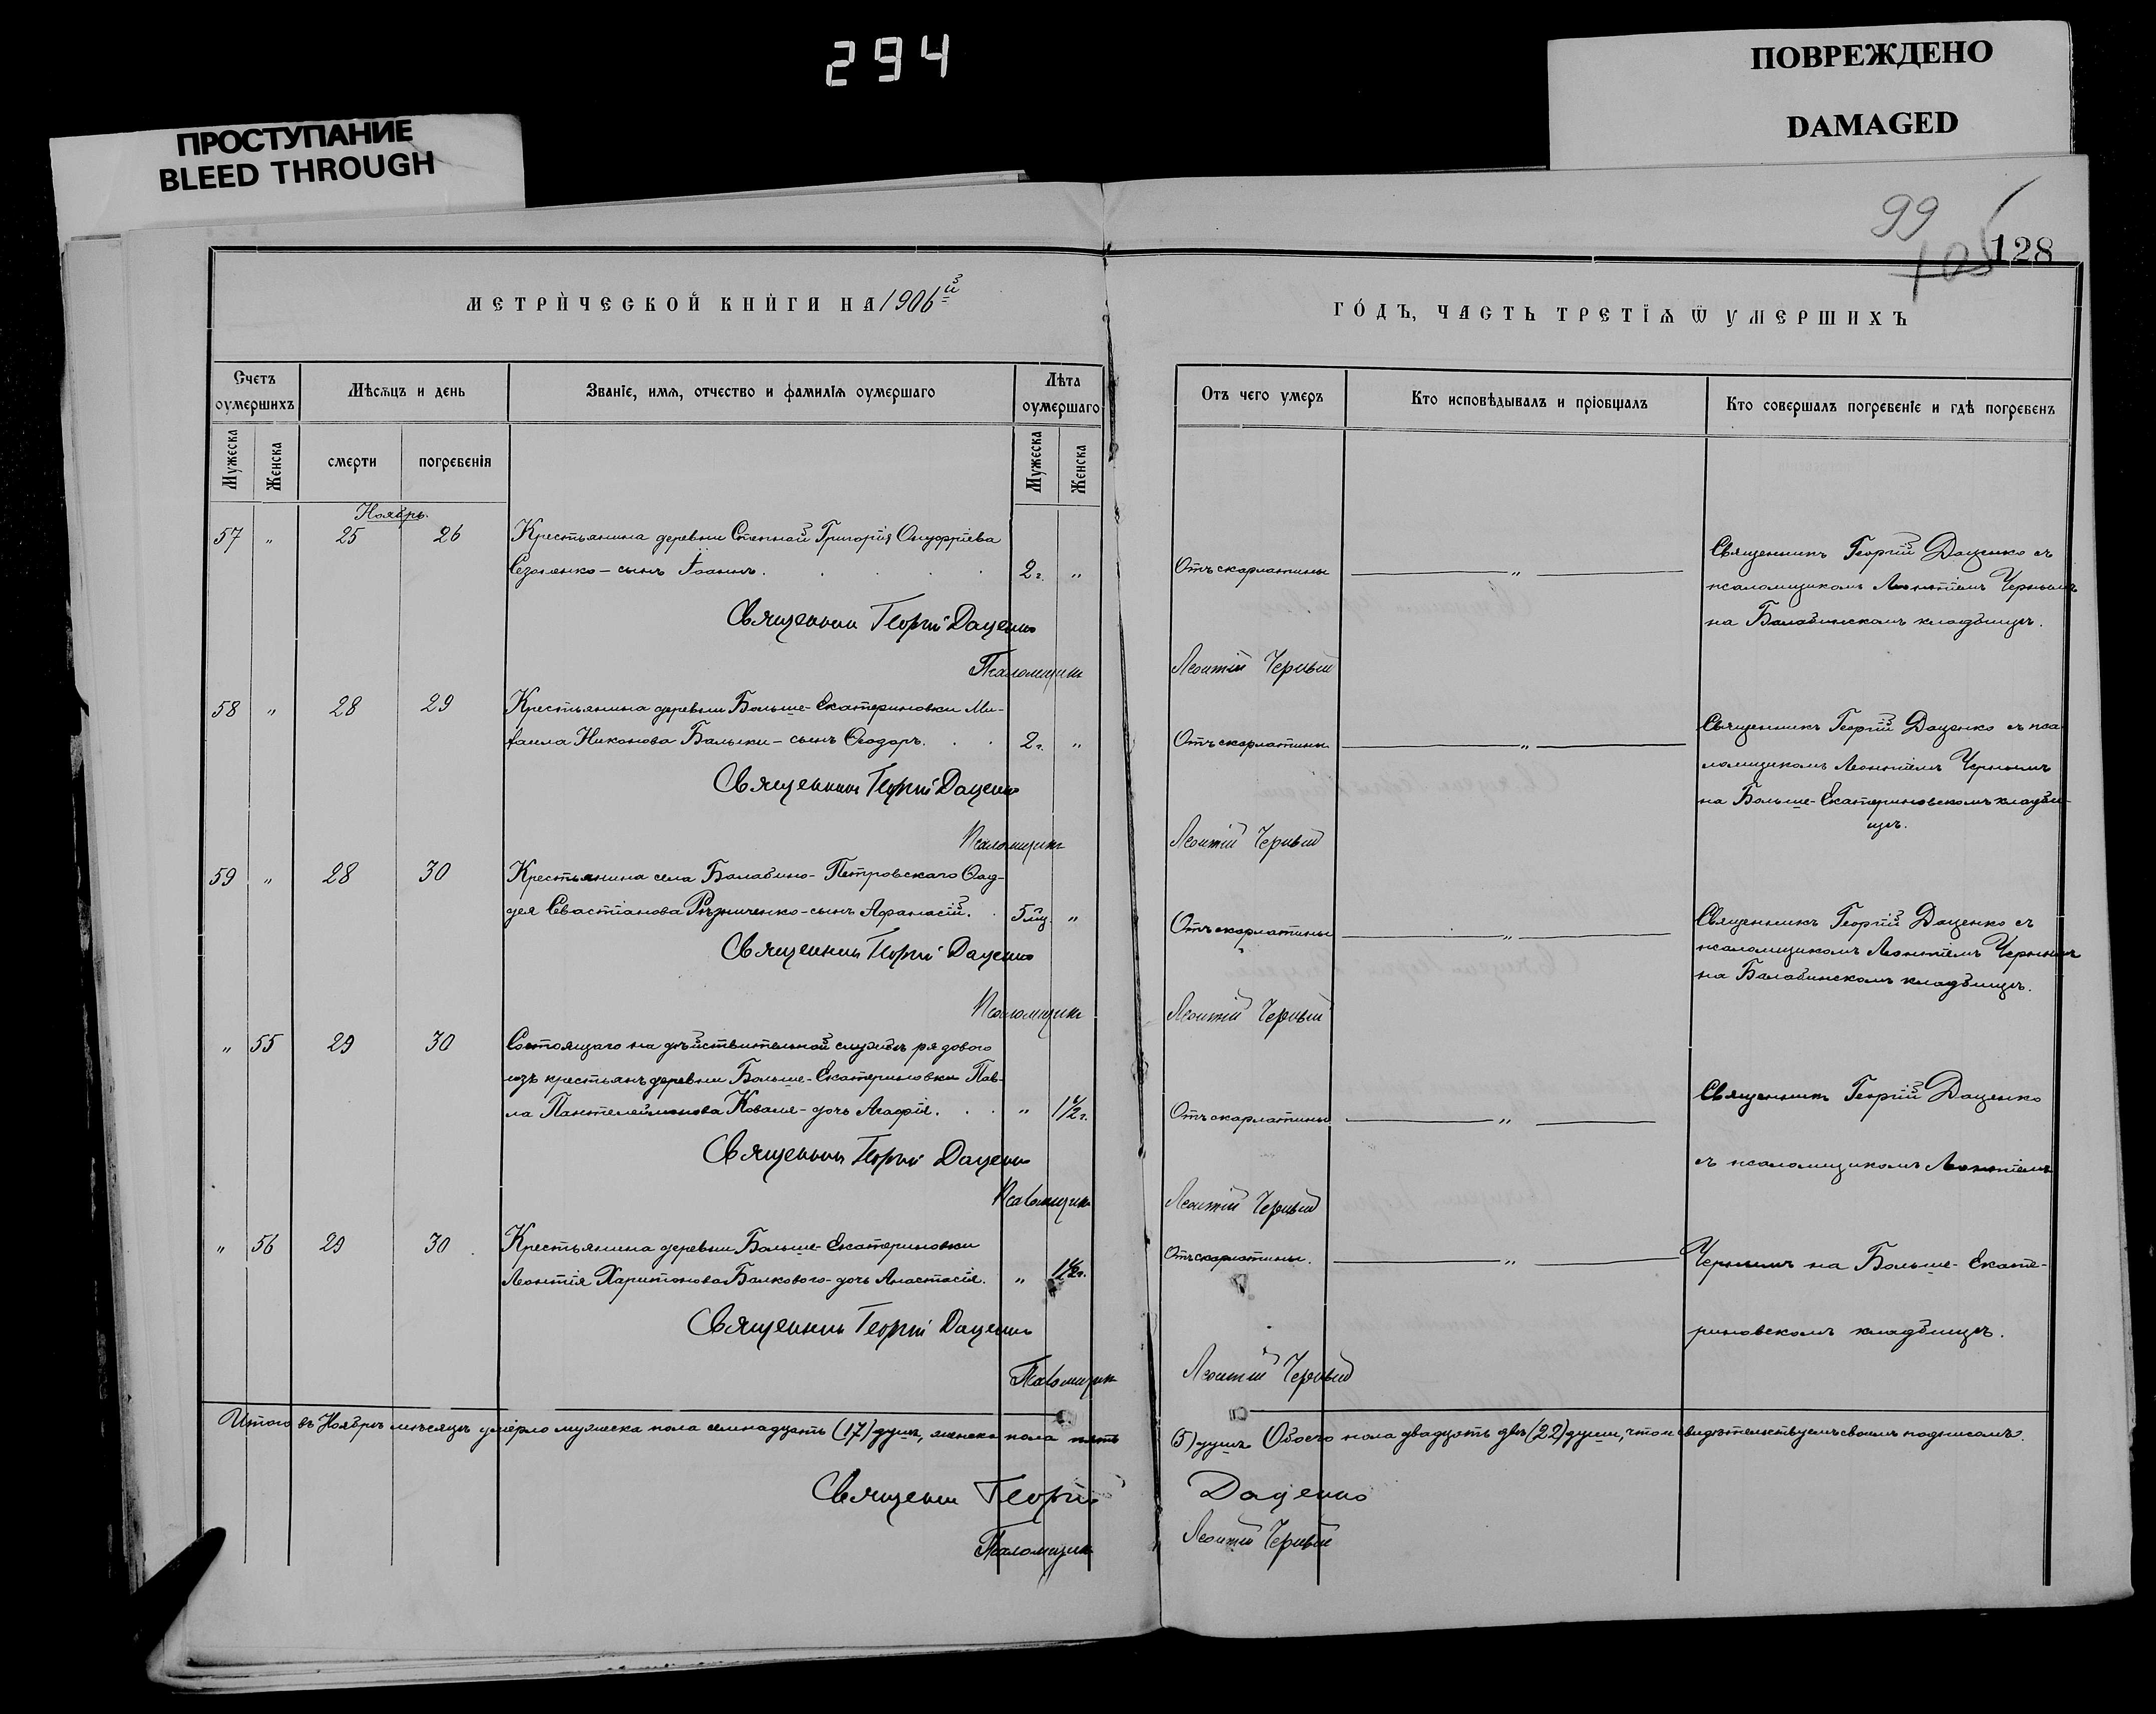 294
ПРОСТУПАНИЕ
BLEED THROUGH
ПОВРЕЖДЕНО
DAMAGED
99
105
128
МЕТРИ́ЧЕСКОЙ КНИ́ГИ НА 1906й
ГО́ДЪ, ЧАСТЬ ТРЕТЇѦ Ѿ УМЕРШИХЪ
Счетъ оумершихъ
Мѣсѧцъ и день
Званїе, имѧ, отчество и фамилїѧ оумершаго
Лѣта оумершаго
Отъ чего умеръ
Кто исповѣдывалъ и прїобщалъ
Кто совершалъ погребенїе и гдѣ погребенъ
Мужеска
Женска
смерти
погребенїя
Мужеска
Женска
Ноябрь.
57 " 25 26 Крестьянина деревни Степной Григорія Онуфріева
сынъ Іоаннъ. 2 г. "
Отъ скарлатины "
Священникъ Георгій Даценко съ
псаломщикомъ Леонтіемъ Чернымъ
на Балабинскомъ кладбищѣ.
Священникъ Георгій Даценко
Псаломщикъ Леонтій Черный
58 " 28 29 Крестьянина деревни Больше-Екатериновки Ми-
хаила Никонова Балыки - сынъ Ѳеодоръ. 2 г. "
Отъ скарлатины "
Священникъ Георгій Даценко съ пса
ломщикомъ Леонтіемъ Чернымъ
на Больше-Екатериновскомъ кладби-
щѣ.
Священникъ Георгій Даценко
Псаломщикъ Леонтій Черный
59 " 28 30 Крестьянина села Балабино-Петровскаго Ѳад-
дея Севастіанова Рѣзниченко - сынъ Афанасій. 5 мц. "
Отъ скарлатины "
Священникъ Георгій Даценко съ
псаломщикомъ Леонтіемъ Чернымъ
на Балабинскомъ кладбищѣ.
Священникъ Георгій Даценко
Псаломщикъ Леонтій Черный
" 55 29 30 Состоящаго на дѣйствительной службѣ рядового
изъ крестьянъ деревни Больше-Екатериновки Пав-
ла Пантелеймонова Коваля - дочь Агафія. " 1½ г.
Отъ скарлатины "
Священникъ Георгій Даценко
съ псаломщикомъ Леонтіемъ
Священникъ Георгій Даценко
Псаломщикъ Леонтій Черный
" 56 29 30 Крестьянина деревни Больше-Екатериновки
Леонтія Харитонова Балкового - дочь Анастасія. " 1½ г.
Отъ скарлатины. "
Чернымъ на Больше-Екате-
риновскомъ кладбищѣ.
Священникъ Георгій Даценко
Псаломщикъ Леонтій Черный
Итого въ Ноябрѣ мѣсяцѣ умерло мужеска пола семнадцать (17) душъ, женска пола пять
(5) душъ Обоего пола двадцать двѣ (22) души, что и свидѣтельствуемъ своимъ подписомъ.
Священникъ Георгій Даценко
Псаломщикъ Леонтій Черный